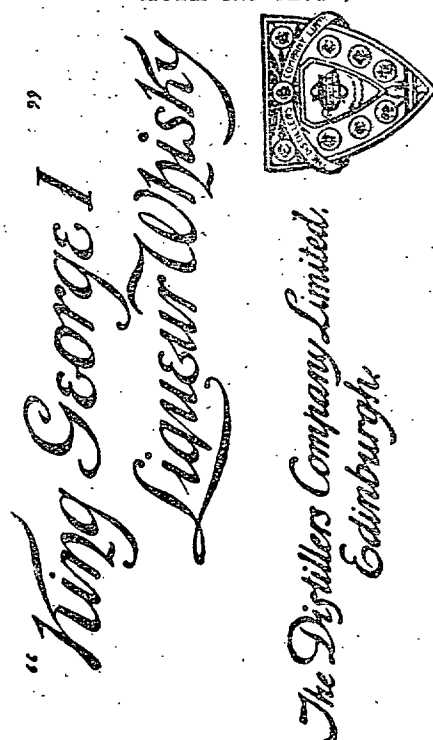 "King George I"
Liqueur Whisky
The Distillers Company Limited.
Edinburgh.